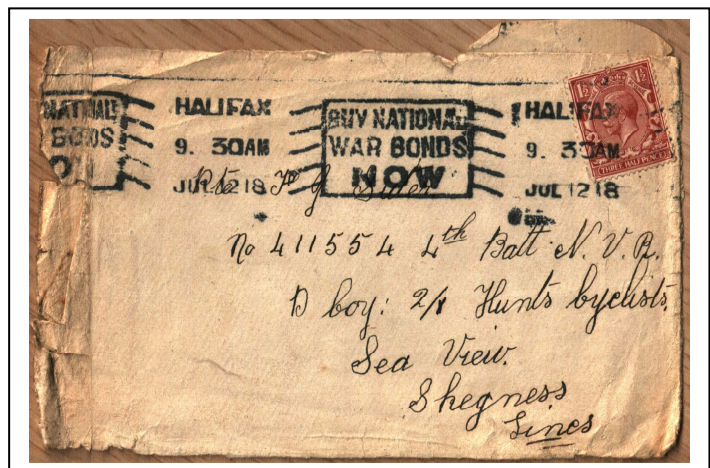 NATIONAL
BONDS
HALIFAX
9. 30AM
JUL 12 18
BUY NATIONAL
WAR BONDS
NOW
HALIFAX
9. 30AM
JUL 12 18
1½ 1½
THREE HALFPENCE
Pte F G
No 411554 4th Batt N. V. R.
D Coy: 2/1 Hunts byclists.
Sea View.
Skegness
Lincs